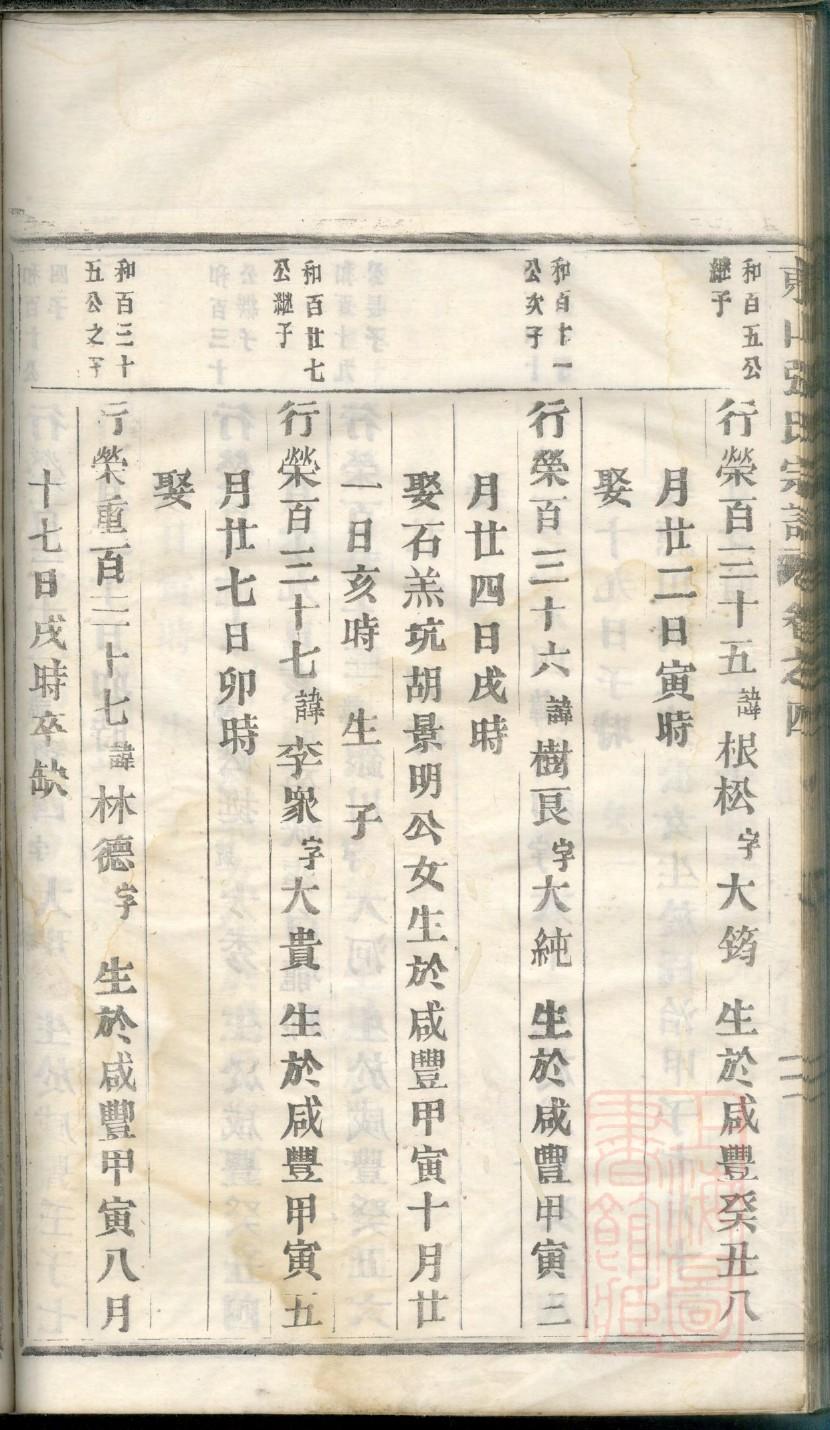 東山張氏宗譜 卷之四
和百五公
繼子
行榮百三十五諱根松字大筠 生於咸豐癸丑八
月廿二日寅時
娶
和百廿一
公次子
行榮百三十六諱樹良字大純 生於咸豐甲寅三
月廿四日戌時
娶石羔坑胡景明公女生於咸豐甲寅十月廿
一日亥時 生 子
和百廿七
公繼子
行榮百三十七諱李眾字大貴 生於咸豐甲寅五
月廿七日卯時
娶
和百三十
五公之子
行榮重百三十七諱林德字 生於咸豐甲寅八月
十七日戌時卒缺